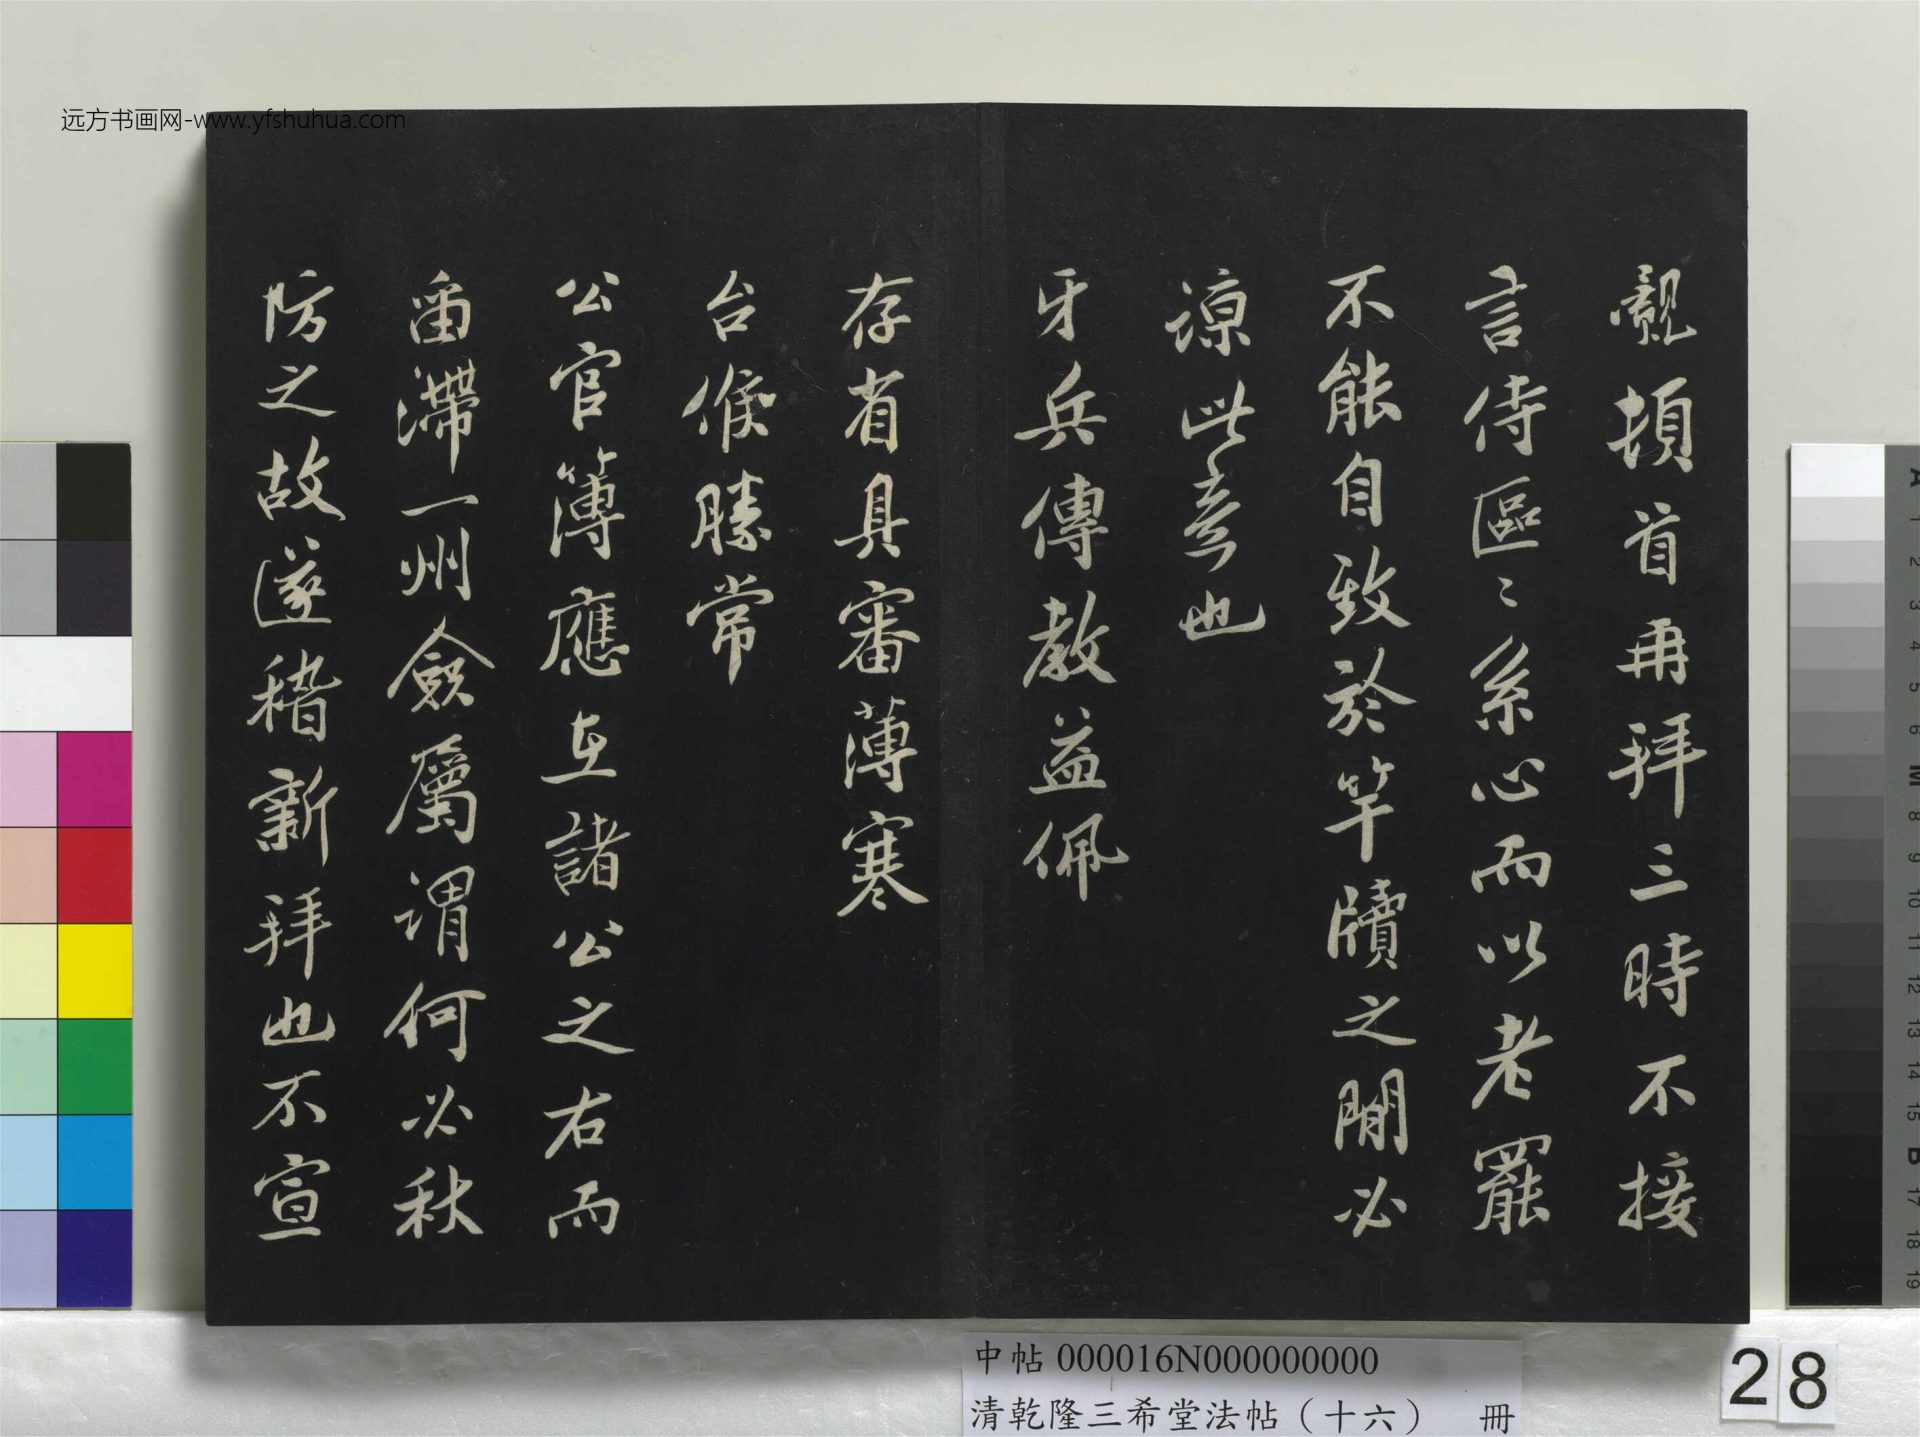 远方书画网-www.yfshuhua.com
覿頓首再拜三時不接
言侍區〻系心而以老罷
不能自致於竿牘之間必
諒此意也
牙兵傳教益佩
存省具審薄寒
台候勝常
公官簿應在諸公之右而
留滯一州僉屬謂何必秋
防之故遂稽新拜也不宣
中帖000016N000000000
清乾隆三希堂法帖（十六） 冊
28
A
1
2
3
4
5
6
M
8
9
10
11
12
13
14
15
B
17
18
19